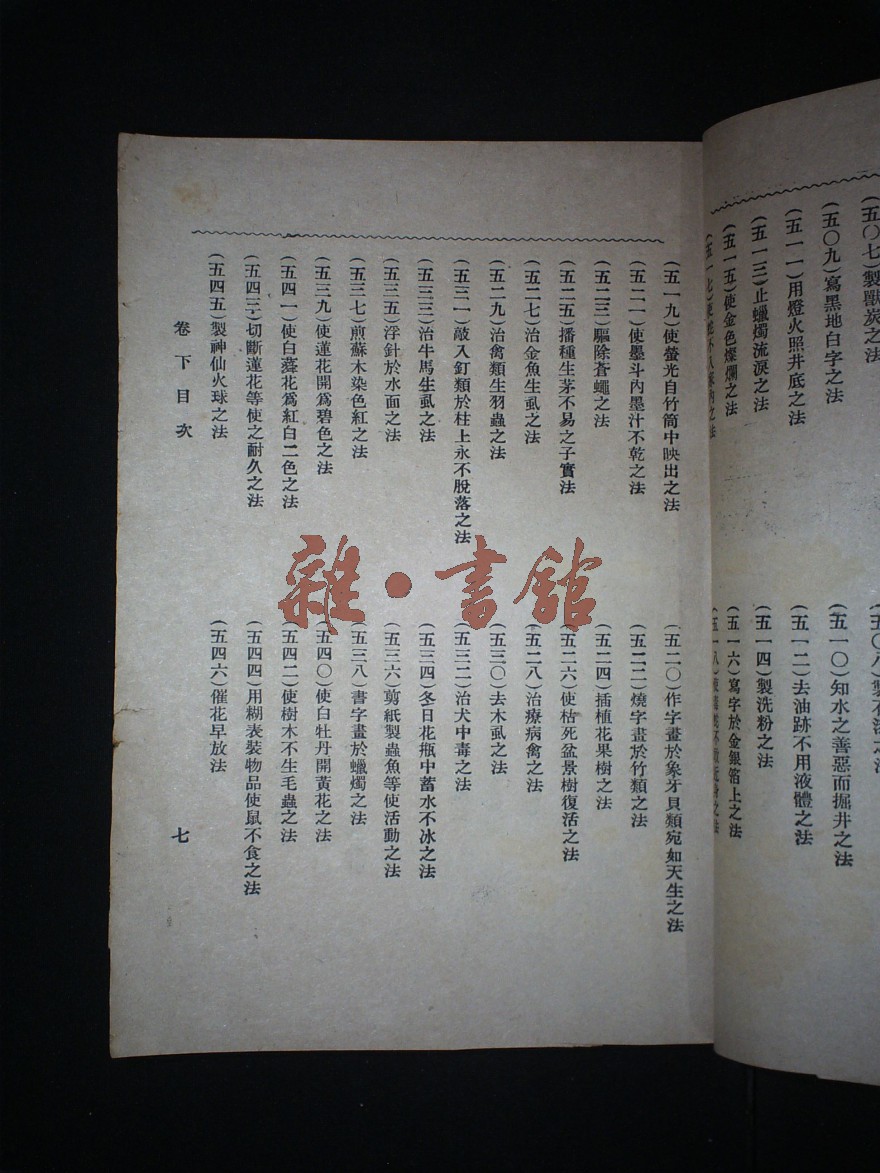 (五〇七)製獸炭之法
(五〇九)寫黑地白字之法
(五一一)用燈火照井底之法
(五一三)止蠟燭流淚之法
(五一五)使金色燦爛之法
(五一七)
(五〇八)製
(五一〇)知水之善惡而掘井之法
(五一二)去油跡不用液體之法
(五一四)製洗粉之法
(五一六)寫字於金銀箔上之法
(五一八)
(五一九)使螢光自竹筒中映出之法
(五二一)使墨斗內墨汁不乾之法
(五二三)驅除蒼蠅之法
(五二五)播種生茅不易之子實法
(五二七)治金魚生虱之法
(五二九)治禽類生羽蟲之法
(五三一)敲入釘類於柱上永不脫落之法
(五三三)治牛馬生虱之法
(五三五)浮針於水面之法
(五三七)煎蘇木染色紅之法
(五三九)使蓮花開爲碧色之法
(五四一)使白蕣花爲紅白二色之法
(五四三)切斷蓮花等使之耐久之法
(五四五)製神仙火球之法
(五二〇)作字畫於象牙貝類宛如天生之法
(五二二)燒字畫於竹類之法
(五二四)插植花果樹之法
(五二六)使枯死盆景樹復活之法
(五二八)治療病禽之法
(五三〇)去木虱之法
(五三二)治犬中毒之法
(五三四)冬日花瓶中蓄水不冰之法
(五三六)剪紙製蟲魚等使活動之法
(五三八)書字畫於蠟燭之法
(五四〇)使白牡丹開黃花之法
(五四二)使樹木不生毛蟲之法
(五四四)用糊表裝物品使鼠不食之法
(五四六)催花早放法
卷下目次
七
雜·書館